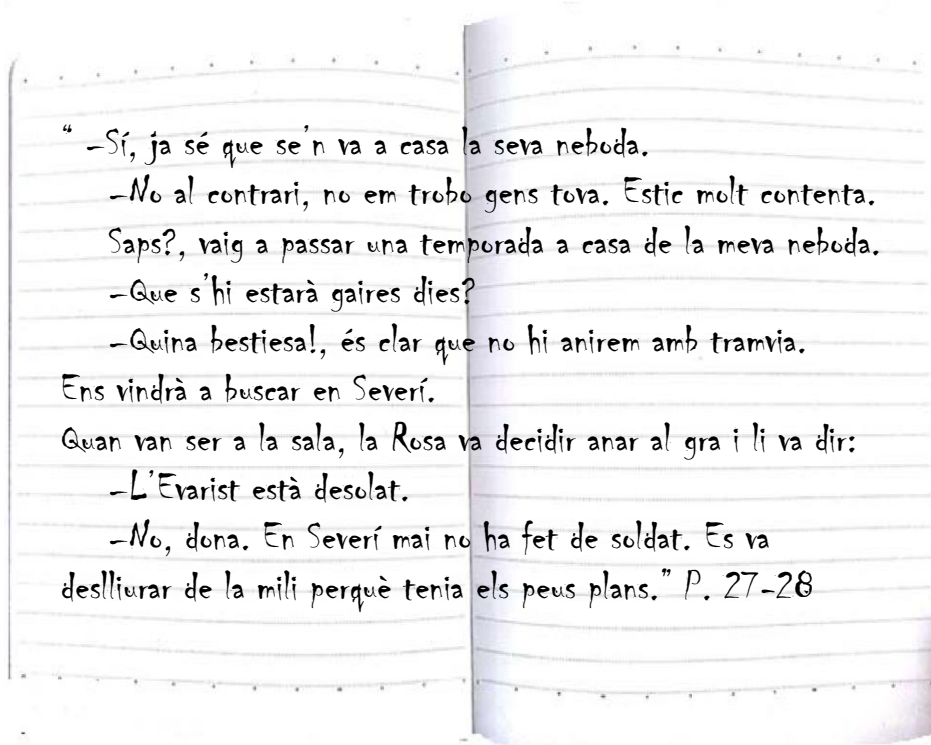 “ –Sí, ja sé que se’n va a casa la seva neboda.
–No al contrari, no em trobo gens tova. Estic molt contenta.
Saps?, vaig a passar una temporada a casa de la meva neboda.
–Que s’hi estarà gaires dies?
–Quina bestiesa!, és clar que no hi anirem amb tramvia.
Ens vindrà a buscar en Severí.
Quan van ser a la sala, la Rosa va decidir anar al gra i li va dir:
–L’Evarist està desolat.
–No, dona. En Severí mai no ha fet de soldat. Es va
deslliurar de la mili perquè tenia els peus plans.” P. 27-28